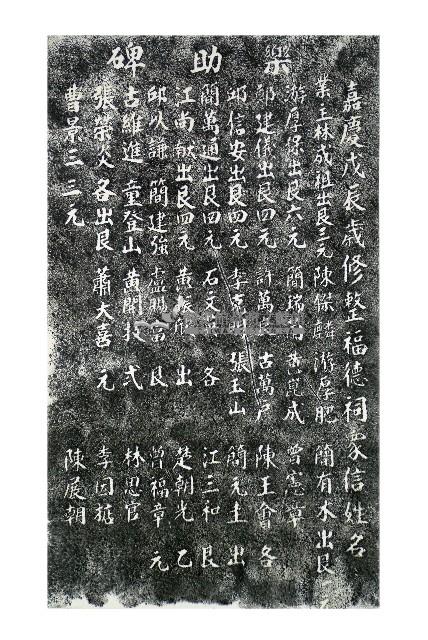 樂助碑
嘉慶戊辰歲修整福德祠眾信姓名
業主林成祖出艮三元 陳傑麟 游厚肥 簡有木 出艮 元
游厚保出艮六元 簡瑞 黃崑成 曾憲章
鄭建儀出艮四元 許萬良 古萬戶 陳王會 各
邱信安出艮四元 李克明 張玉山 簡元圭 出
簡萬通出艮四元 石文 各 江三和 艮
江南献出艮四元 黃振 出 楚朝光 乙
邱以謙 簡建強 富 艮 曾福章 元
古維進 童登山 黃開 弍 林思官
張榮火 各出艮 蕭大喜 元 李因
曹景三 二元 陳展朝